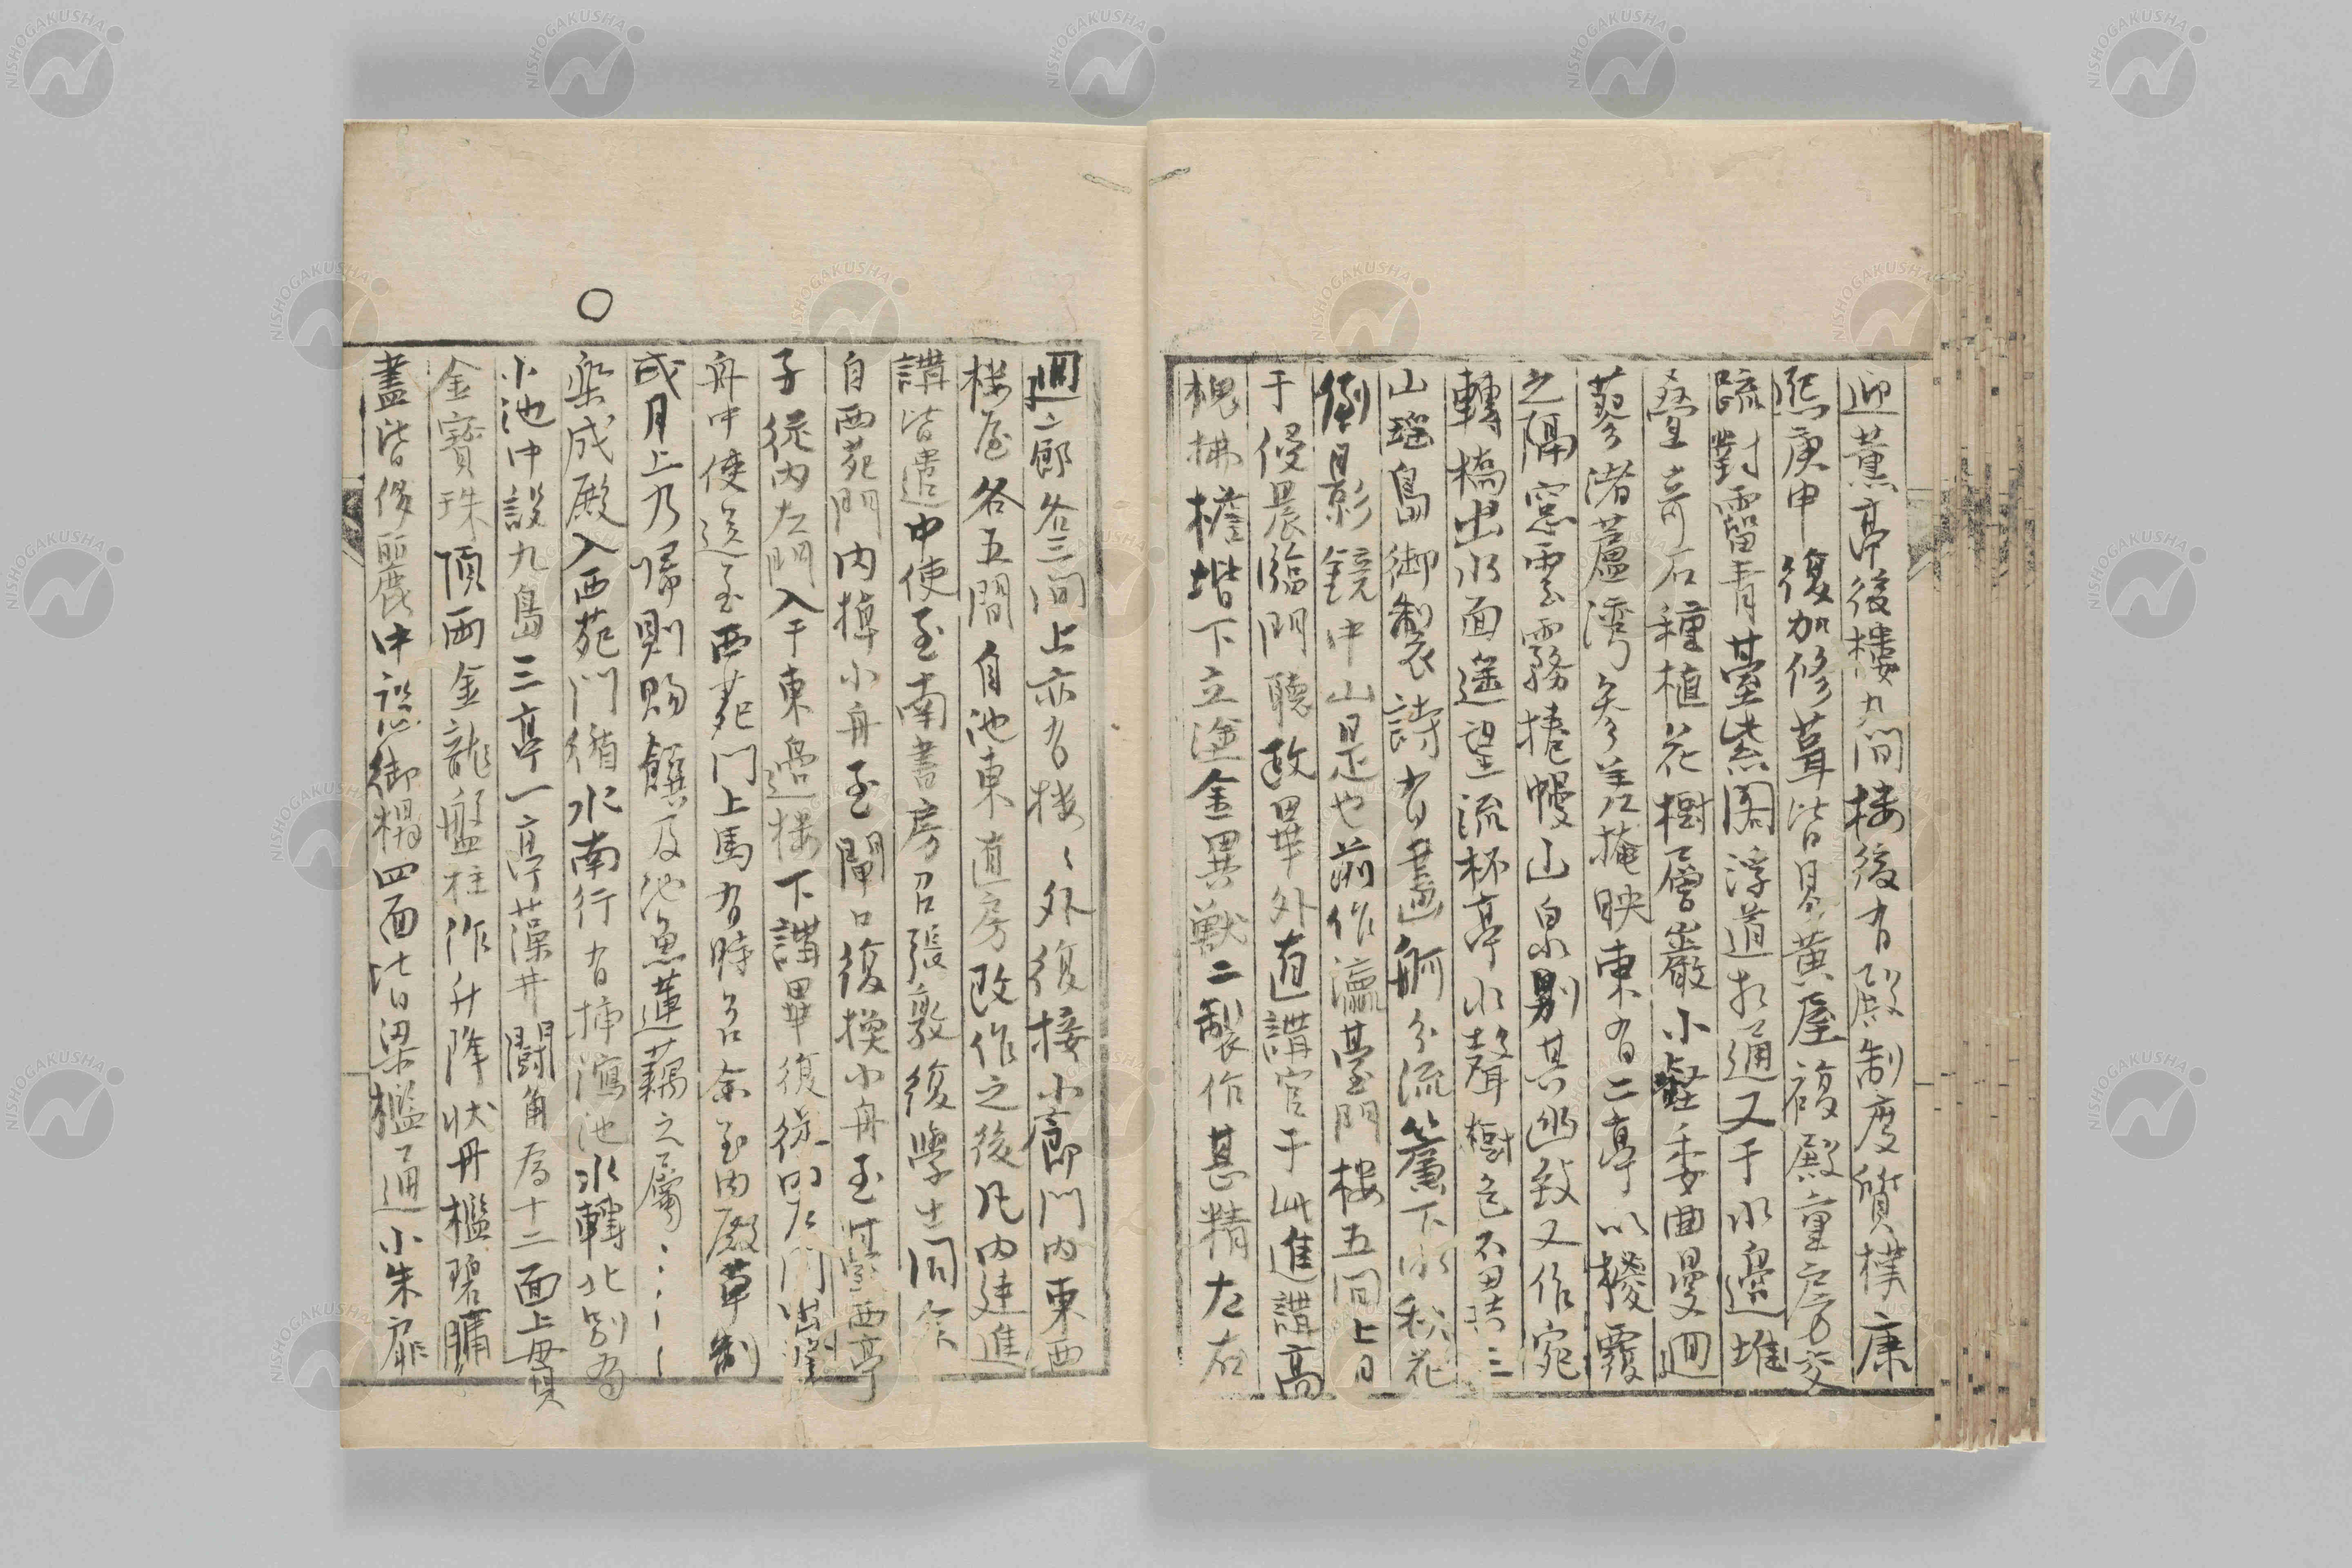 迎薰亭後樓九间楼後有殿制度質樸康
熙庚申復加修葺皆易黄屋複殿重房交
疏對霤青臺紫閣浮道相通又于水邊堆
叠奇石種植花樹層巖小壑委曲曼迴
蓼渚蘆湾参差掩映東有二亭以椶覆
之隔窓雲霧捲幔山泉别具幽致又作宛
轉橋出水面遥望流杯亭水聲樹色不异三
山瑶島御製詩有畫舸分流簾下水秋花
倒影鏡中山是也前作瀛臺門楼五间上日
于侵晨臨門聴政畢外直講官于此進講高
槐拂檐堦下立塗金異獣二製作甚精左右
迴廊各三间上亦有楼〻外復接小廊門内東西
楼屋各五間自池東直房改作之後凡内廷進
講皆遣中使至南書房召張敦復學士同余
自西苑門内掉小舟至閘口復換小舟至 西亭
子從内左門入于東邊楼下講畢復從 左门出望
舟中使送至西苑门上馬有時召余至内殿草制
或月上乃歸則賜饌及池魚蓮藕之屬
○
樂成殿入西苑门循水南行有挿 池水轉北别为
小池中設九島三亭一亭藻井闘角为十二面上貫
金寳珠頂両金龍盤柱作升降状丹檻碧牖
盖皆侈麗中設御榻四面皆梁檻通小朱扉